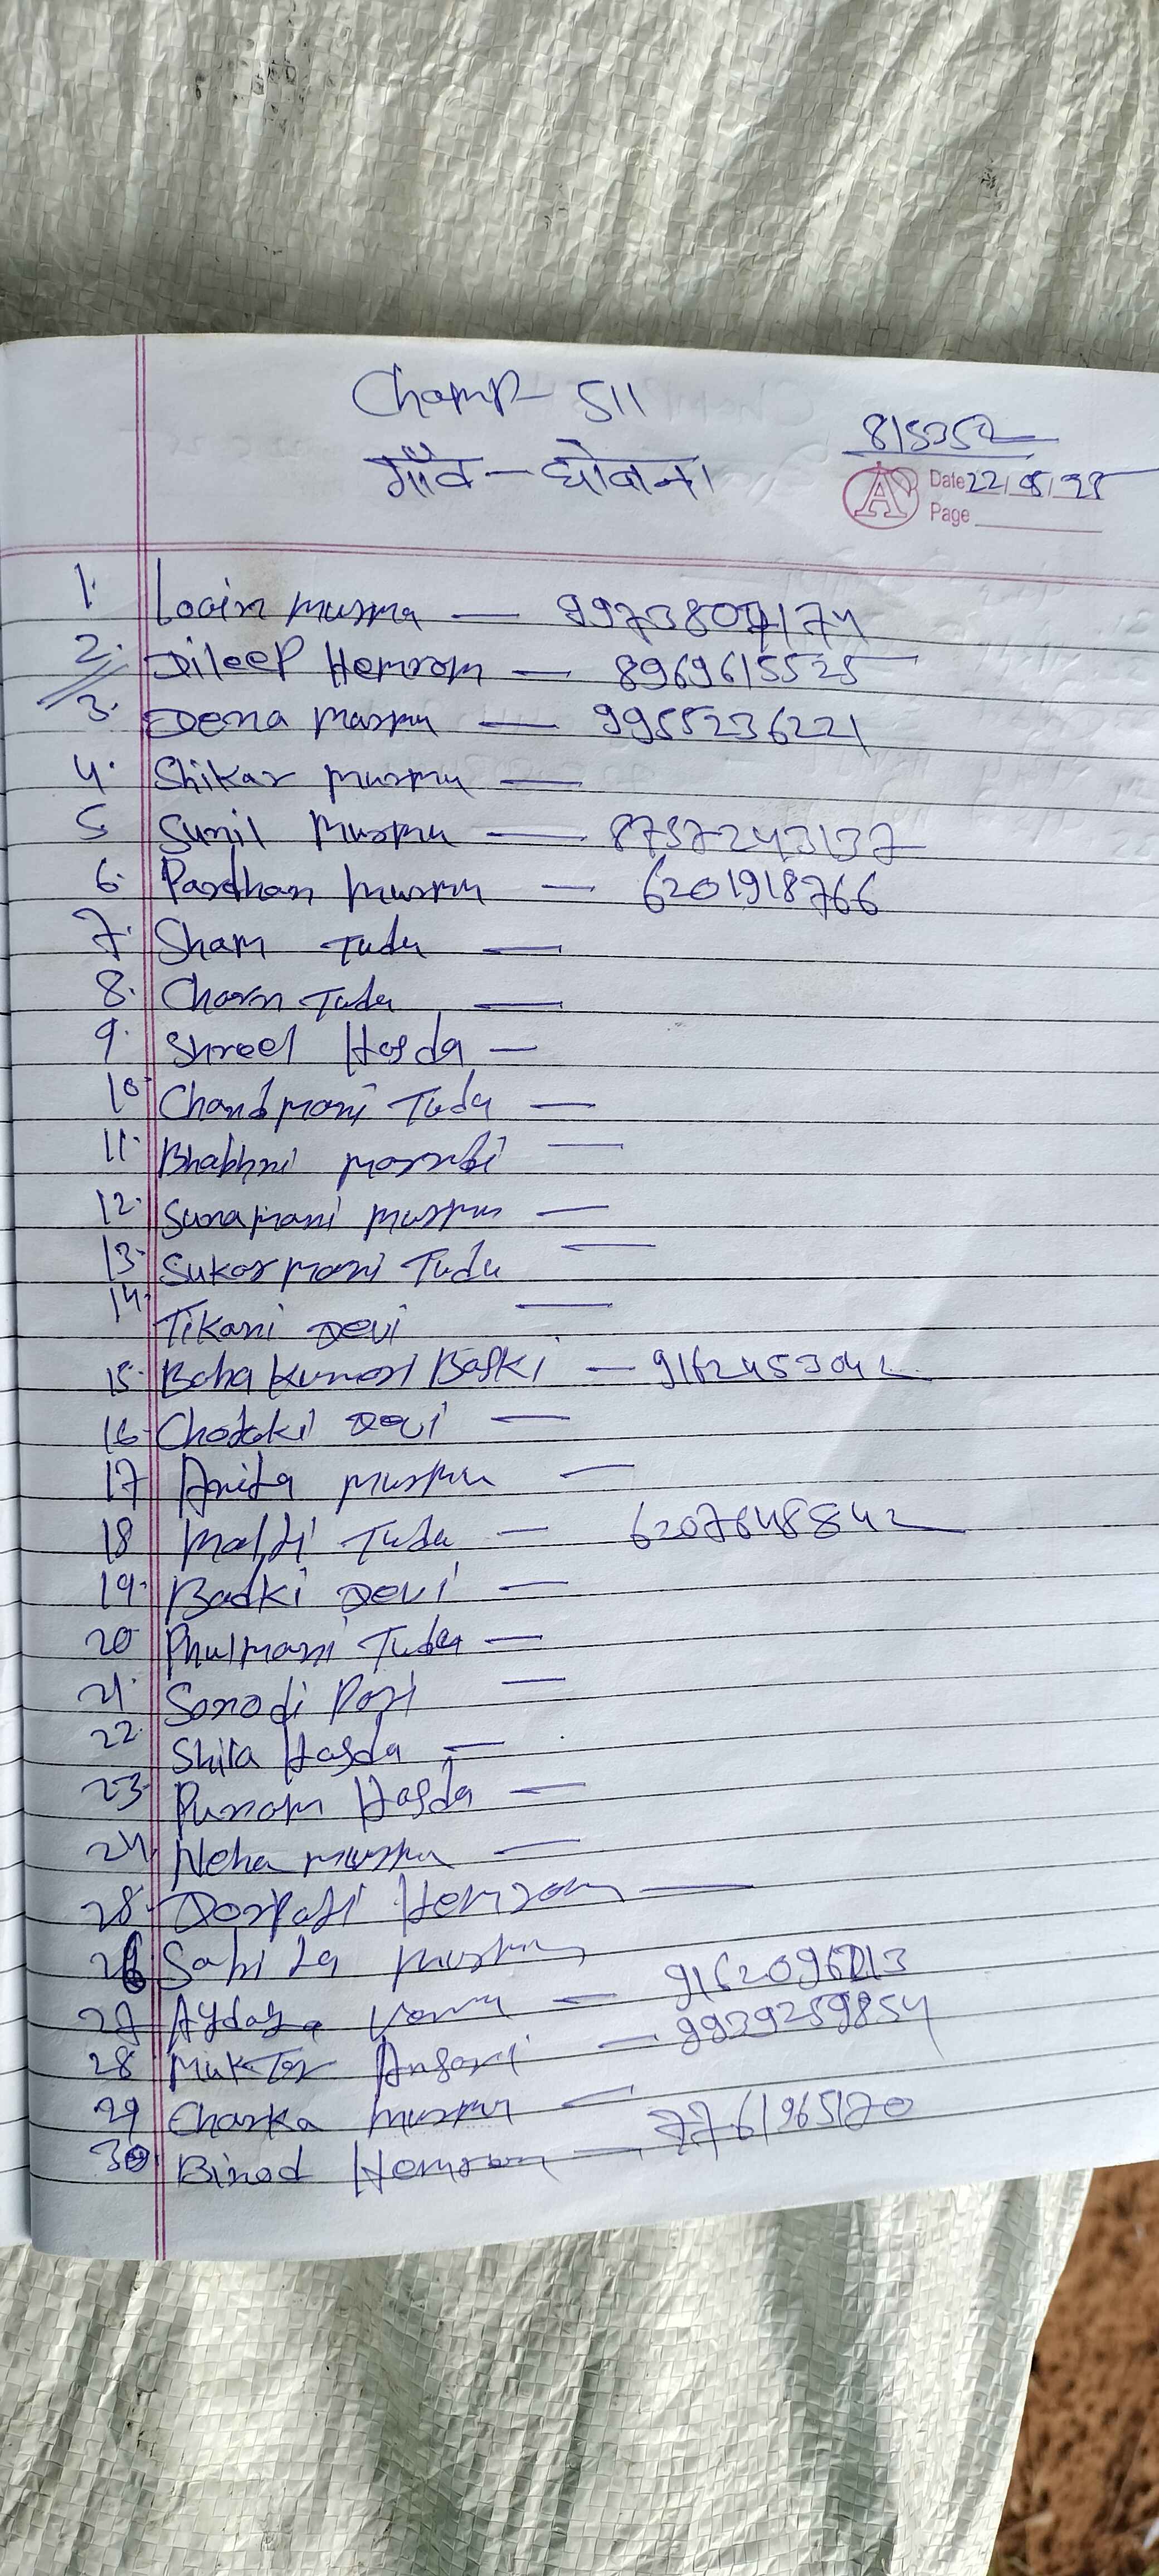 Champ 511
815352
गाँव - धोबना
Date 22/08/25
Page
1. Loain murmu — 9973807174
2. Dileep Hemrom — 8969615525
3. Dena Murmu — 9955236221
4. Shikar murmu —
5 Sunil Murmu — 8757243137
6. Pardhan Murmu — 6201918766
7. Sham Tudu —
8. Charn Tudu —
9. Shreel Hasda —
10. Chandmani Tudu —
11. Bhabhni marndi —
12. Sunamani murmu —
13. Sukarmani Tudu —
14. Tikani Devi —
15. Baha Kumari Baski — 9162453042
16 Chotaki Devi —
17 Anita murmu —
18 Malti Tudu — 6207648842
19. Badki Devi —
20 Phulmani Tudu —
21. Sonodi
22. Shila Hasda —
23. Punam Hasda —
24. Neha murmu —
25. Dorpati Hemrom —
26 Sabita murmu
27 Verma —
28 Muktar Ansari — 9939259854
29 Charka murmu —
30. Binod Hemrom — 7761965170